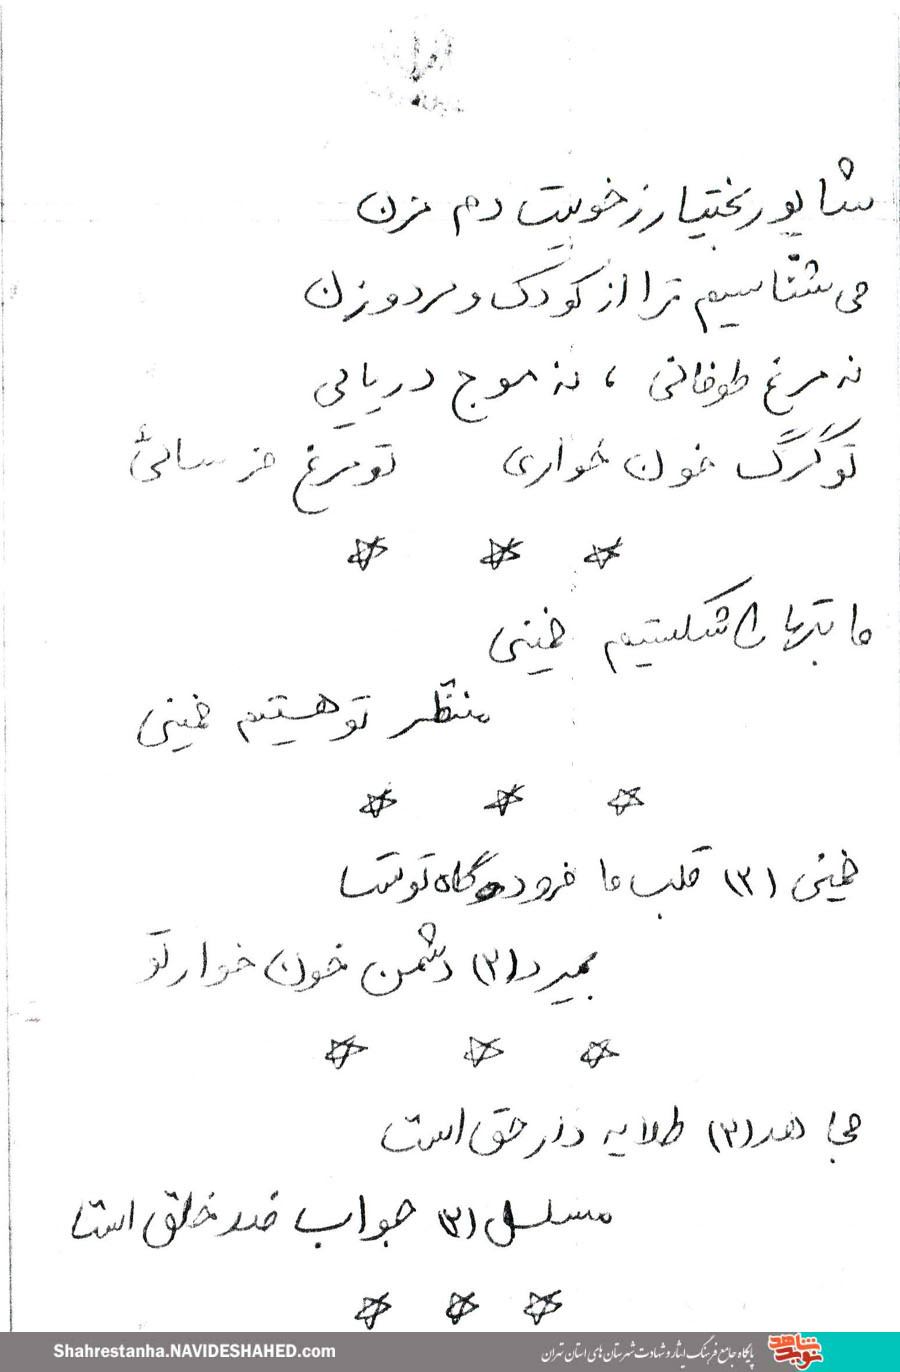 شاپور بختیار ز خوبیت دم مزن
می شناسیم ترا از کودک و مرد و زن
نه مرغ طوفانی ، نه موج دریایی
تو گرگ خون خواری تو مرغ
ما بتها را شکستیم خمینی
منتظر تو هستیم خمینی
خمینی (۳) قلب ما فرودگاه توست
بمیرد (۳) دشمن خون خوار تو
مجاهد (۳) طلایه دار حق است
مسلسل (۳) جواب ضد خلق است
Shahrestanha.NAVIDESHAHED.com
پایگاه جامع فرهنگ ایثار و شهادت شهرستان های استان تهران
نوید شاهد